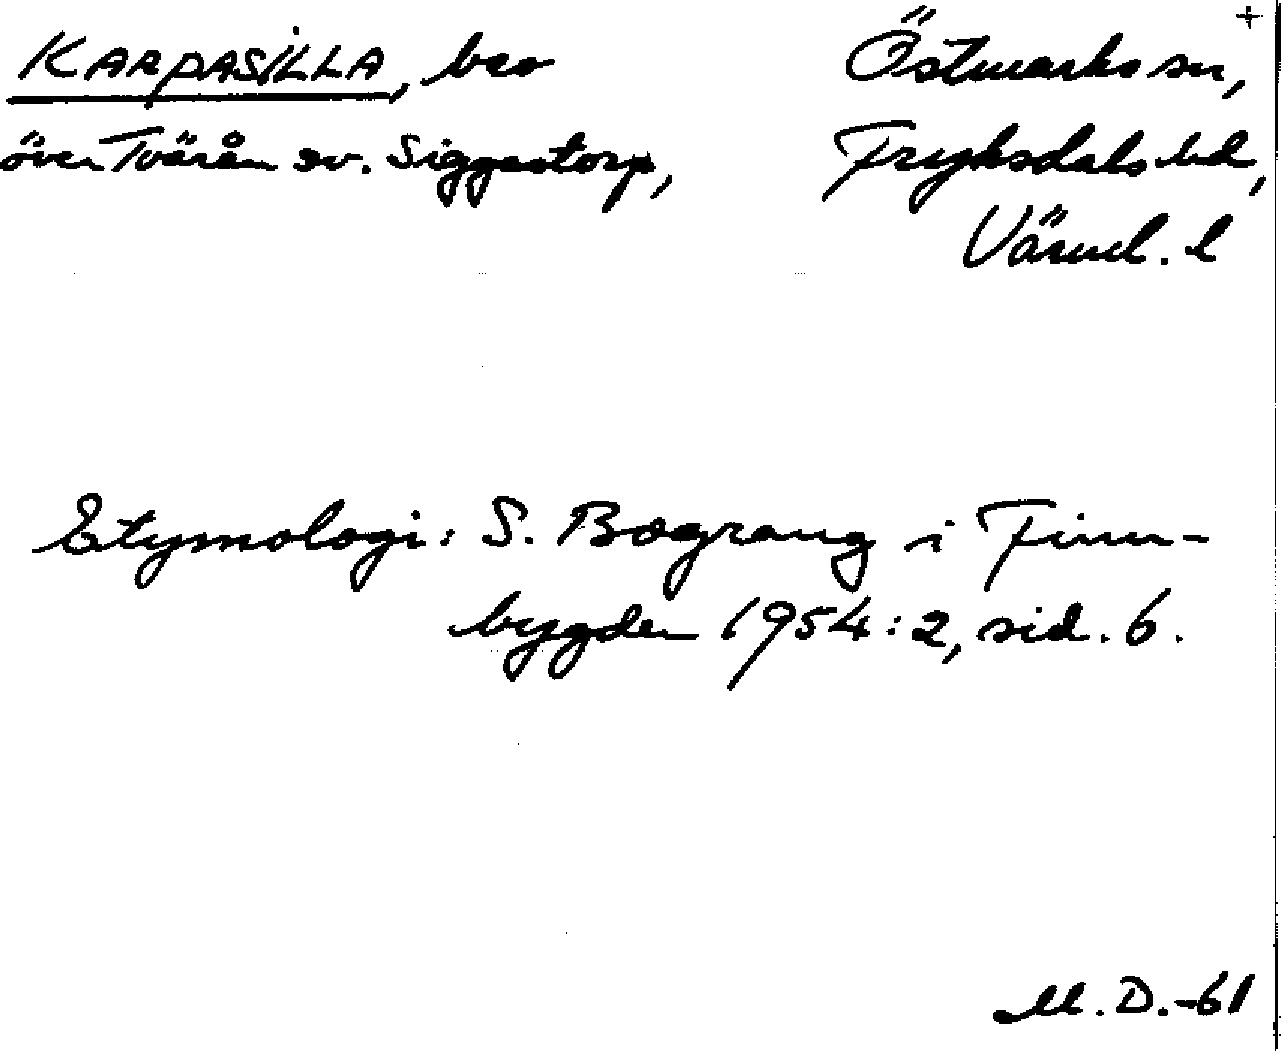 +
KARPASILLA, bro
över Tvärån sv. Siggastorp,
Östmarks sn,
Fryksdals hd,
Värml. l
Etymologi: S. Bograng i Finn-
bygden 1954:2, sid. 6.
M. D. -61